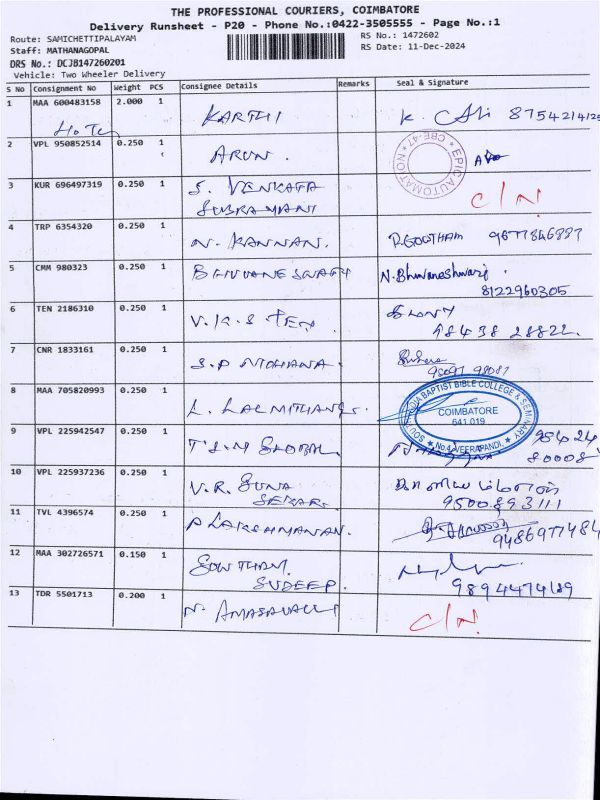 THE PROFESSIONAL COURIERS, COIMBATORE
Delivery Runsheet - P20 - Phone No.:0422-3505555 - Page No.:1
Route: SAMICHETTIPALAYAM RS No.: 1472602
Staff: MATHANAGOPAL RS Date: 11-Dec-2024
DRS No.: DCJB147260201
Vehicle: Two Wheeler Delivery
S No Consignment No Weight PCS Consignee Details Remarks Seal & Signature
1 MAA 600483158 2.000 1 KARTHI
2 VPL 950852514 0.250 1 ARUN.
EPIC AUTOMAT
CBE-47
3 KUR 696497319 0.250 1 S. VENKATA C/N
SUBRAMANI
4 TRP 6354320 0.250 1 N. KANNAN. P.GOOTHAM
5 CMM 980323 0.250 1 BHUVANESWARY N.Bhuvaneshwari.
8122960305
6 TEN 2186310 0.250 1 V.K.S TEX
98438 28822.
7 CNR 1833161 0.250 1 S.P MOHANA.
8 MAA 705820993 0.250 1
BAPTIST BIBLE COLLEGE & SEMINARY
COIMBATORE
641 019
VEERAPANDI
9 VPL 225942547 0.250 1
10 VPL 225937236 0.250 1 V.R. GUNA
SEKAR. 9500893111
11 TVL 4396574 0.250 1 P LAKSHMANAN.
9486977484
12 MAA 302726571 0.150 1 GOWTHAM.
SUDEEP.
13 TDR 5501713 0.200 1 C/N.